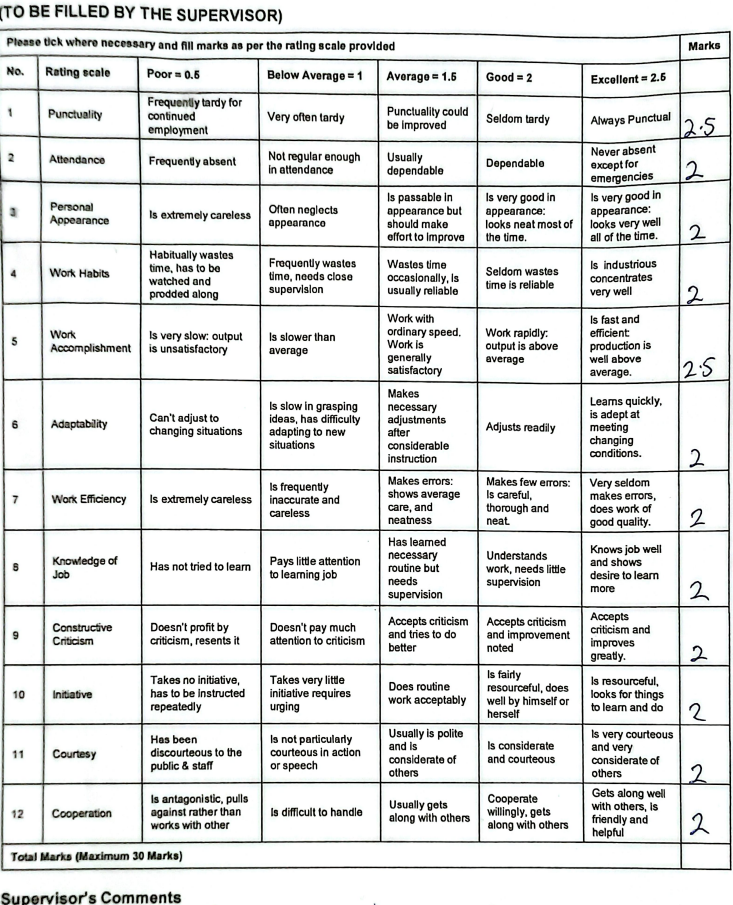 (TO BE FILLED BY THE SUPERVISOR)
Please tick where necessary and fill marks as per the rating scale provided Marks
No. Rating scale Poor = 0.5 Below Average = 1 Average = 1.5 Good = 2 Excellent = 2.5
1 Punctuality Frequently tardy for continued employment Very often tardy Punctuality could be improved Seldom tardy Always Punctual 2.5
2 Attendance Frequently absent Not regular enough in attendance Usually dependable Dependable Never absent except for emergencies 2
3 Personal Appearance Is extremely careless Often neglects appearance Is passable in appearance but should make effort to improve Is very good in appearance: looks neat most of the time. Is very good in appearance: looks very well all of the time. 2
4 Work Habits Habitually wastes time, has to be watched and prodded along Frequently wastes time, needs close supervision Wastes time occasionally, is usually reliable Seldom wastes time is reliable Is industrious concentrates very well 2
5 Work Accomplishment Is very slow: output is unsatisfactory Is slower than average Work with ordinary speed. Work is generally satisfactory Work rapidly: output is above average Is fast and efficient: production is well above average. 2.5
6 Adaptability Can't adjust to changing situations Is slow in grasping ideas, has difficulty adapting to new situations Makes necessary adjustments after considerable instruction Adjusts readily Learns quickly, is adept at meeting changing conditions. 2
7 Work Efficiency Is extremely careless Is frequently inaccurate and careless Makes errors: shows average care, and neatness Makes few errors: Is careful, thorough and neat. Very seldom makes errors, does work of good quality. 2
8 Knowledge of Job Has not tried to learn Pays little attention to learning job Has learned necessary routine but needs supervision Understands work, needs little supervision Knows job well and shows desire to learn more 2
9 Constructive Criticism Doesn't profit by criticism, resents it Doesn't pay much attention to criticism Accepts criticism and tries to do better Accepts criticism and improvement noted Accepts criticism and improves greatly. 2
10 Initiative Takes no initiative, has to be instructed repeatedly Takes very little initiative requires urging Does routine work acceptably Is fairly resourceful, does well by himself or herself Is resourceful, looks for things to learn and do 2
11 Courtesy Has been discourteous to the public & staff Is not particularly courteous in action or speech Usually is polite and is considerate of others Is considerate and courteous Is very courteous and very considerate of others 2
12 Cooperation Is antagonistic, pulls against rather than works with other Is difficult to handle Usually gets along with others Cooperate willingly, gets along with others Gets along well with others, is friendly and helpful 2
Total Marks (Maximum 30 Marks)
Supervisor's Comments